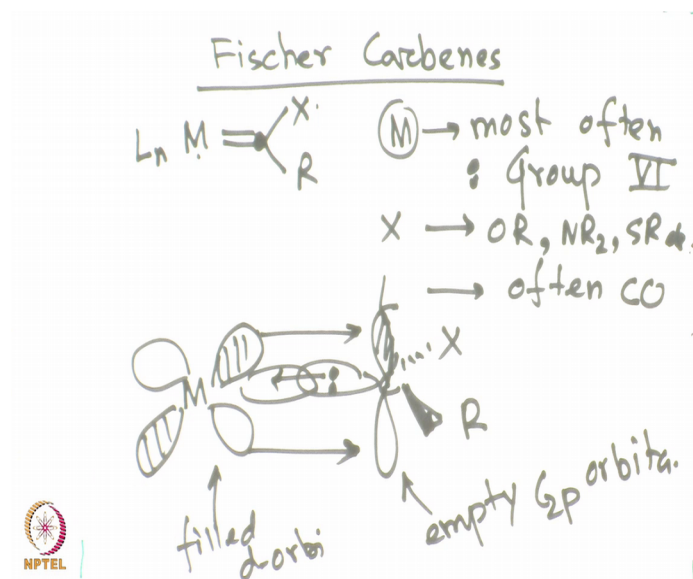 Fischer Carbenes
Ln M = X
R
M → most often
: Group VI
X → OR, NR2, SR
L → often CO
M : X
R
filled
d-orbi
empty C2p orbita.
NPTEL